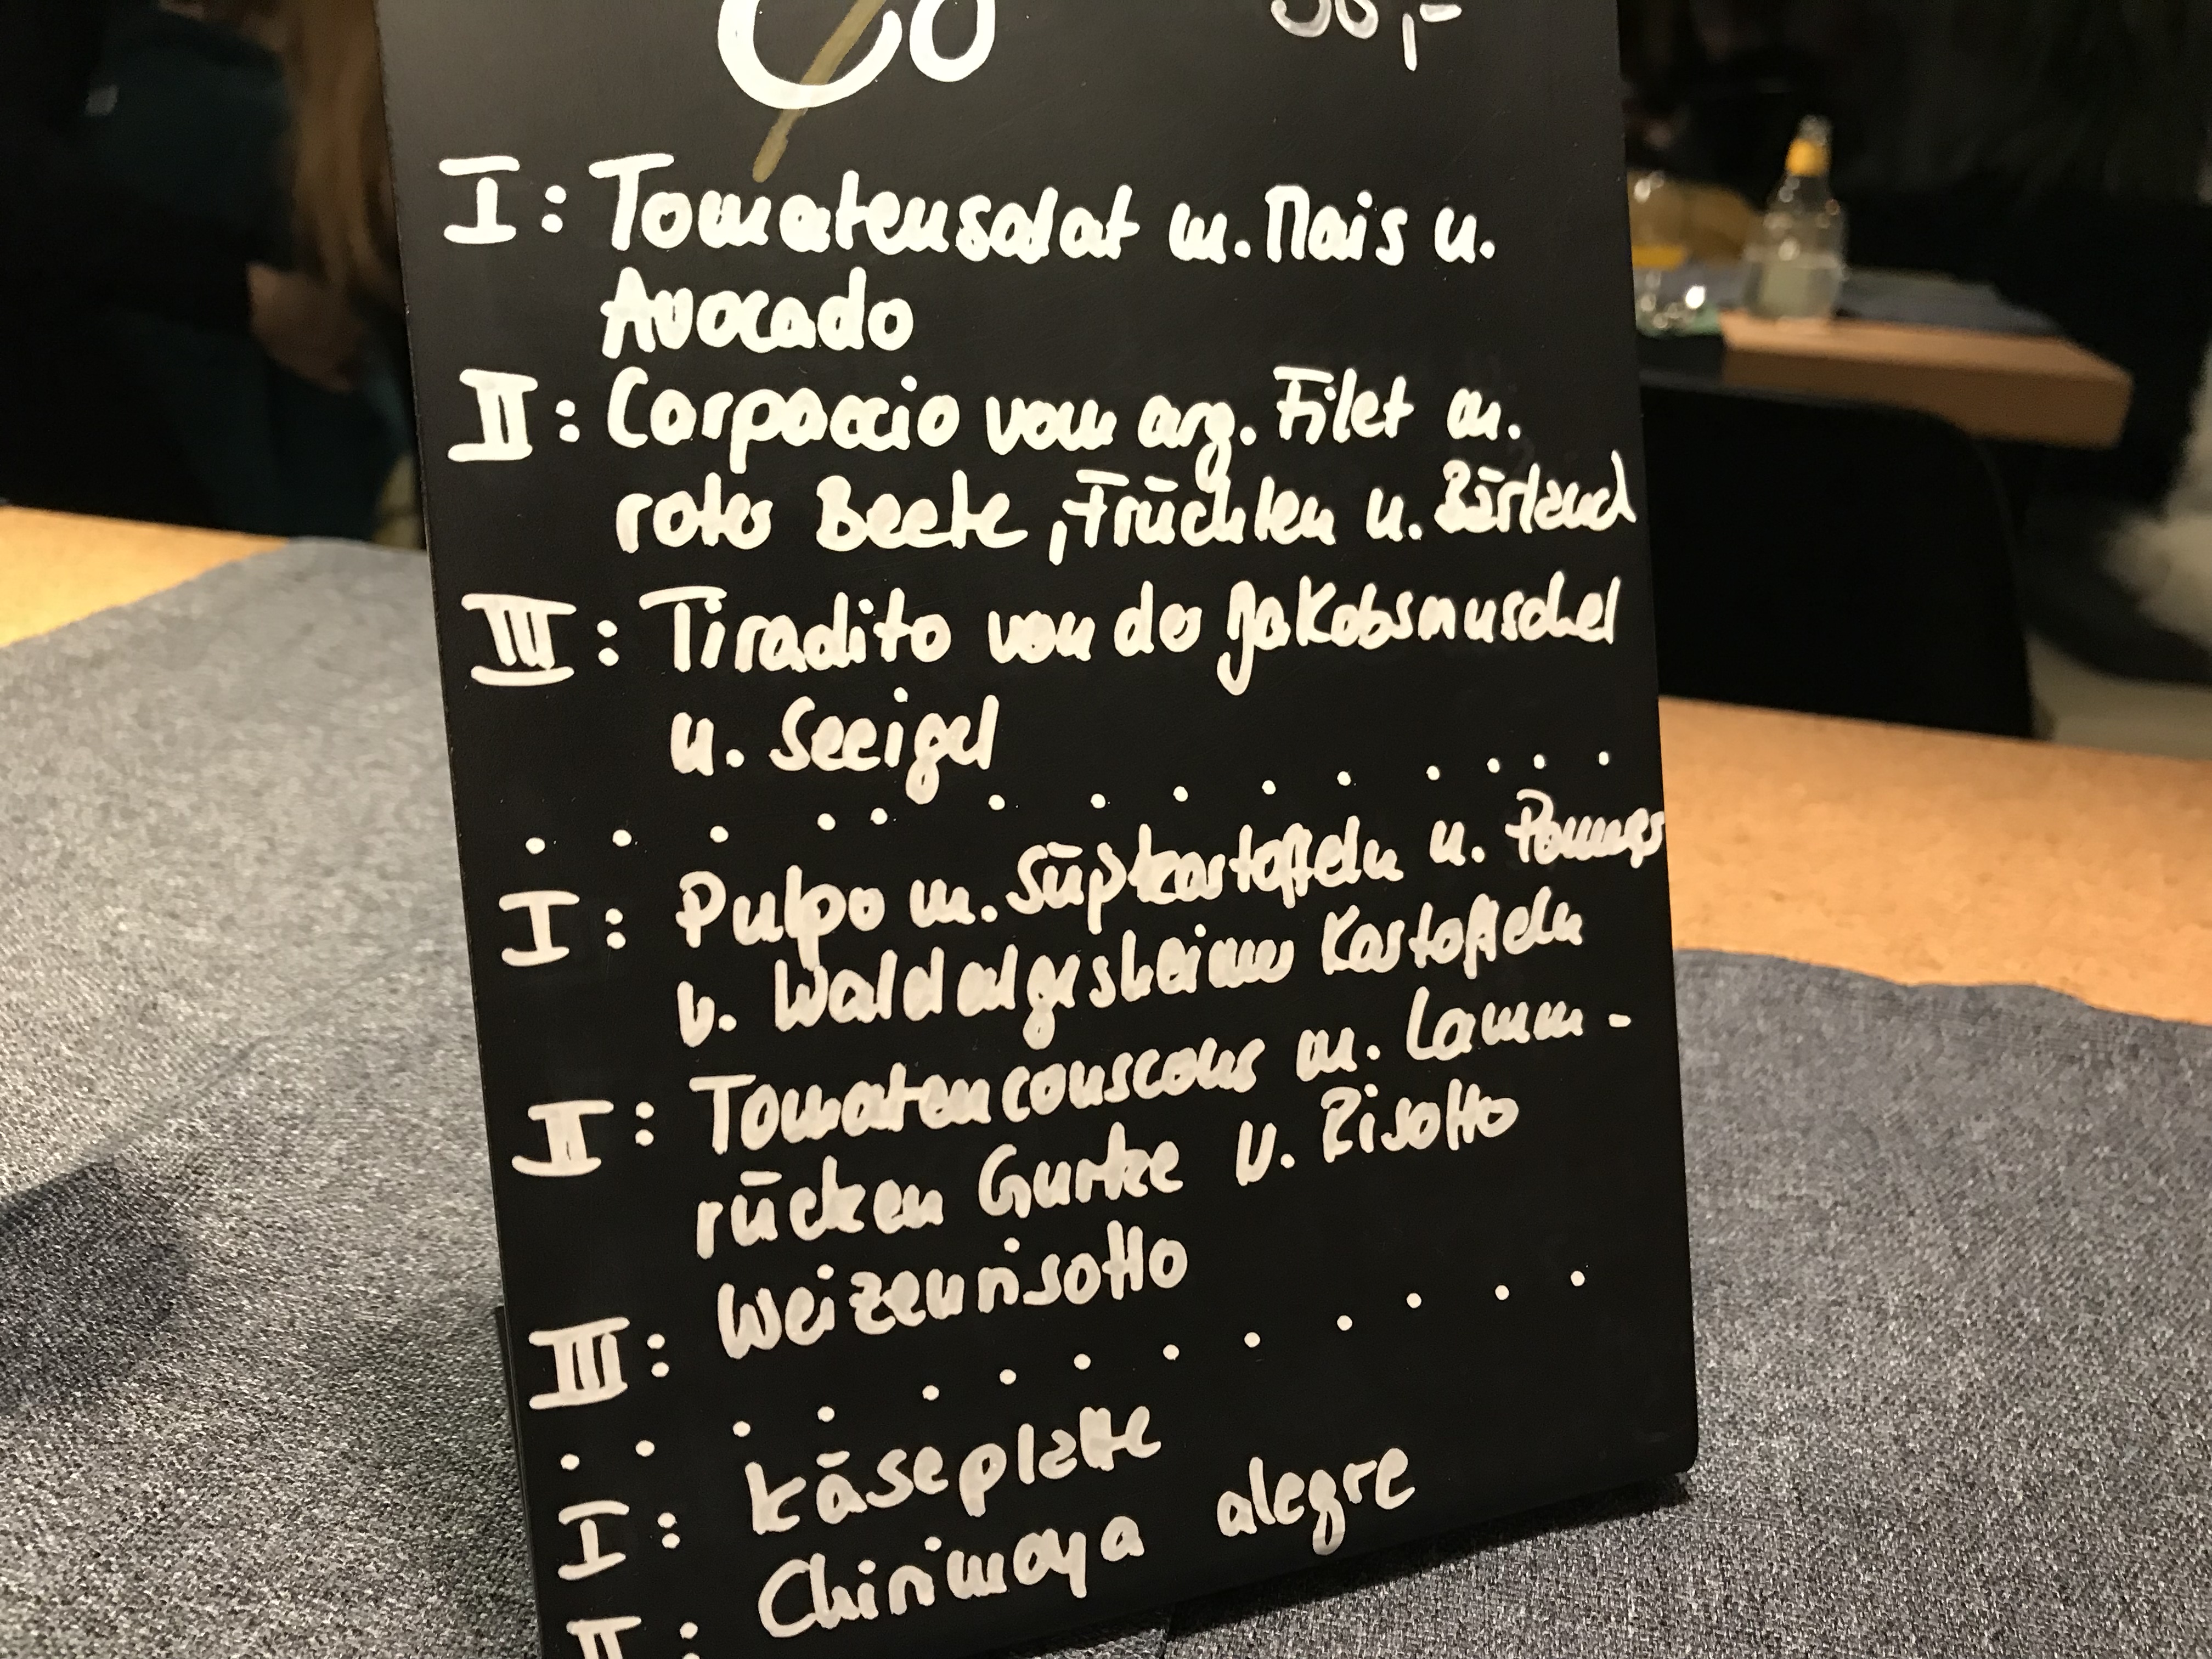 I: Tomatensalat m. Mais u.
Avocado
II: Carpaccio vom arg. Filet m.
roter Beete, Früchten u. Bärlauch
III: Tiradito von der Jakobsmuschel
u. Seeigel
I: Pulpo m. Süßkartoffeln u. Pommes
v. Waldalgesheimer Kartoffeln
II: Tomatencouscous m. Lamm-
rücken Gurke u. Risotto
III: Weizenrisotto
I: Käseplatte
II: Chirimoya alegre